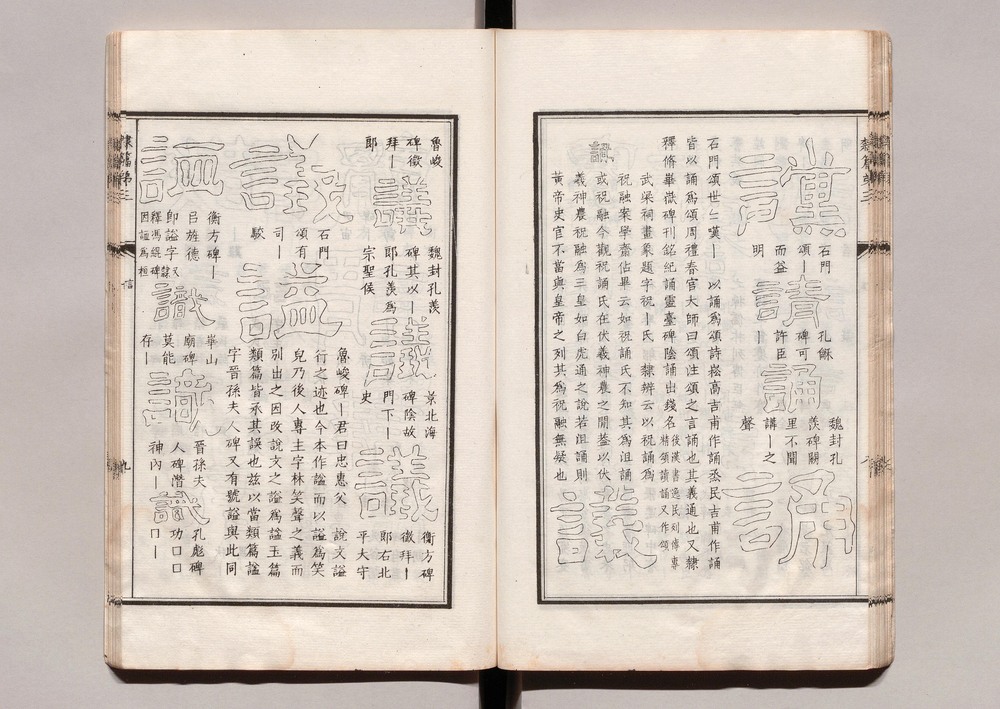 讜
石門
頌｜
而益
明
請
孔龢
碑可
許臣
｜
誦
魏封孔
羨碑闕
里不聞
講｜之
聲
誦
石門頌世世嘆｜以誦爲頌詩崧高吉甫作誦烝民吉甫作誦
皆以誦爲頌周禮春官大師曰頌注頌之言誦也其義通也又隸
釋脩華嶽碑刊銘紀誦靈臺碑陰誦出錢名後漢書逸民列傳專精頌讀誦又作頌
武梁祠畫象題字祝｜氏 隸辨云以祝誦爲
祝融案學齋佔畢云如祝誦氏不知其爲沮誦
或祝融今觀祝誦氏在伏羲神農之閒葢以伏
羲神農祝融爲三皇如白虎通之說若沮誦則
黃帝史官不當與皇帝之列其爲祝融無疑也
議
魯峻
碑徵
拜｜
郎
議
魏封孔羨
碑其以｜
郎孔羨爲
宗聖侯
議
景北海
碑陰故
門下｜
史
議
衡方碑
徵拜｜
郎右北
平太守
議
石門
頌有
司｜
駮
謚
魯峻碑｜君曰忠惠父 說文謚
行之迹也今本作謚而以謚爲笑
皃乃後人專主字林笑聲之義而
別出之因改說文之謚爲謚玉篇
類篇皆承其誤也茲以當類篇謚
字晉孫夫人碑又有號謚與此同
衡方碑｜
㠯旌德
卽謚字又隸
釋馮緄碑
因謚爲桓
識
崋山
廟碑
莫能
存｜
識
晉孫夫
人碑潛
神內｜
識
孔彪碑
功口口
口｜